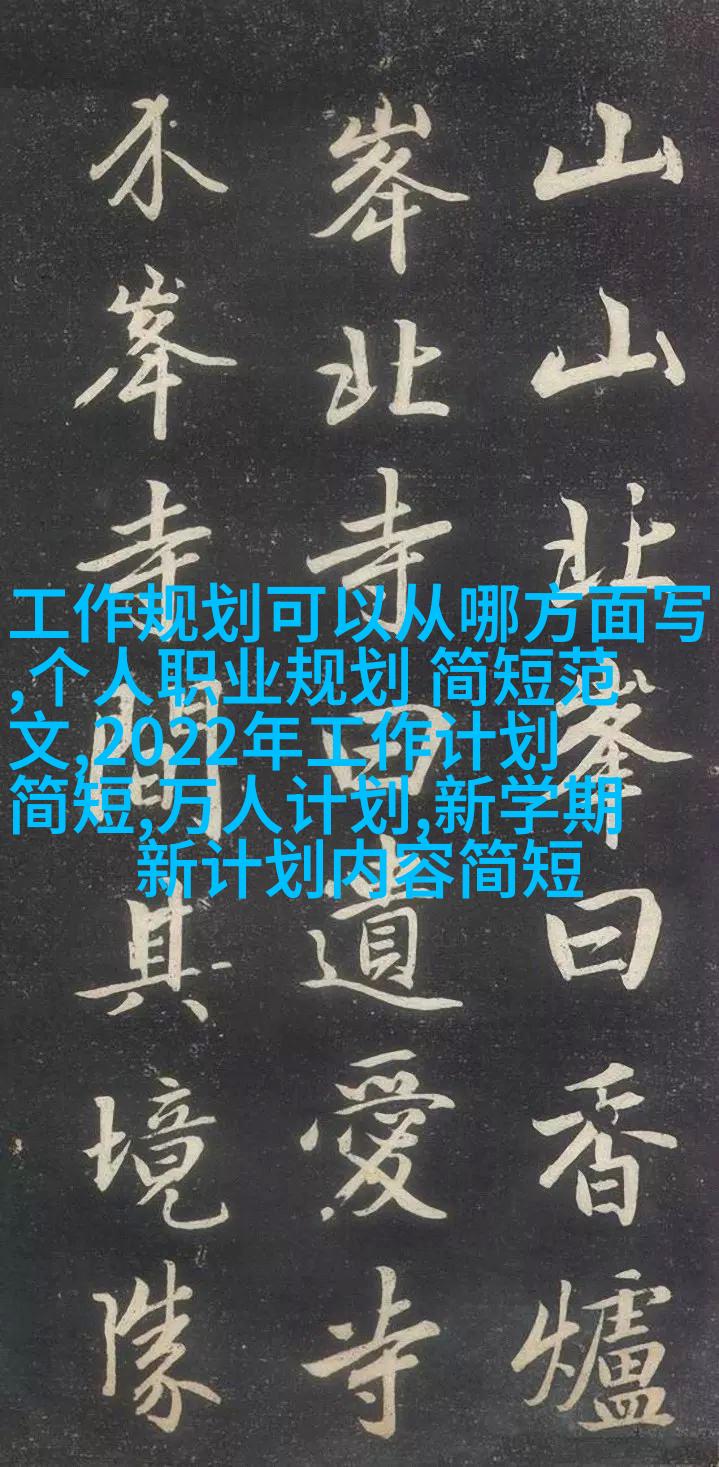 山山北峯曰香爐
峯北寺曰遺愛寺
介峯寺間其境勝
工作规划可以从哪方面写
,个人职业规划 简短范
文,2022年工作计划
简短,万人计划,新学期
新计划内容简短